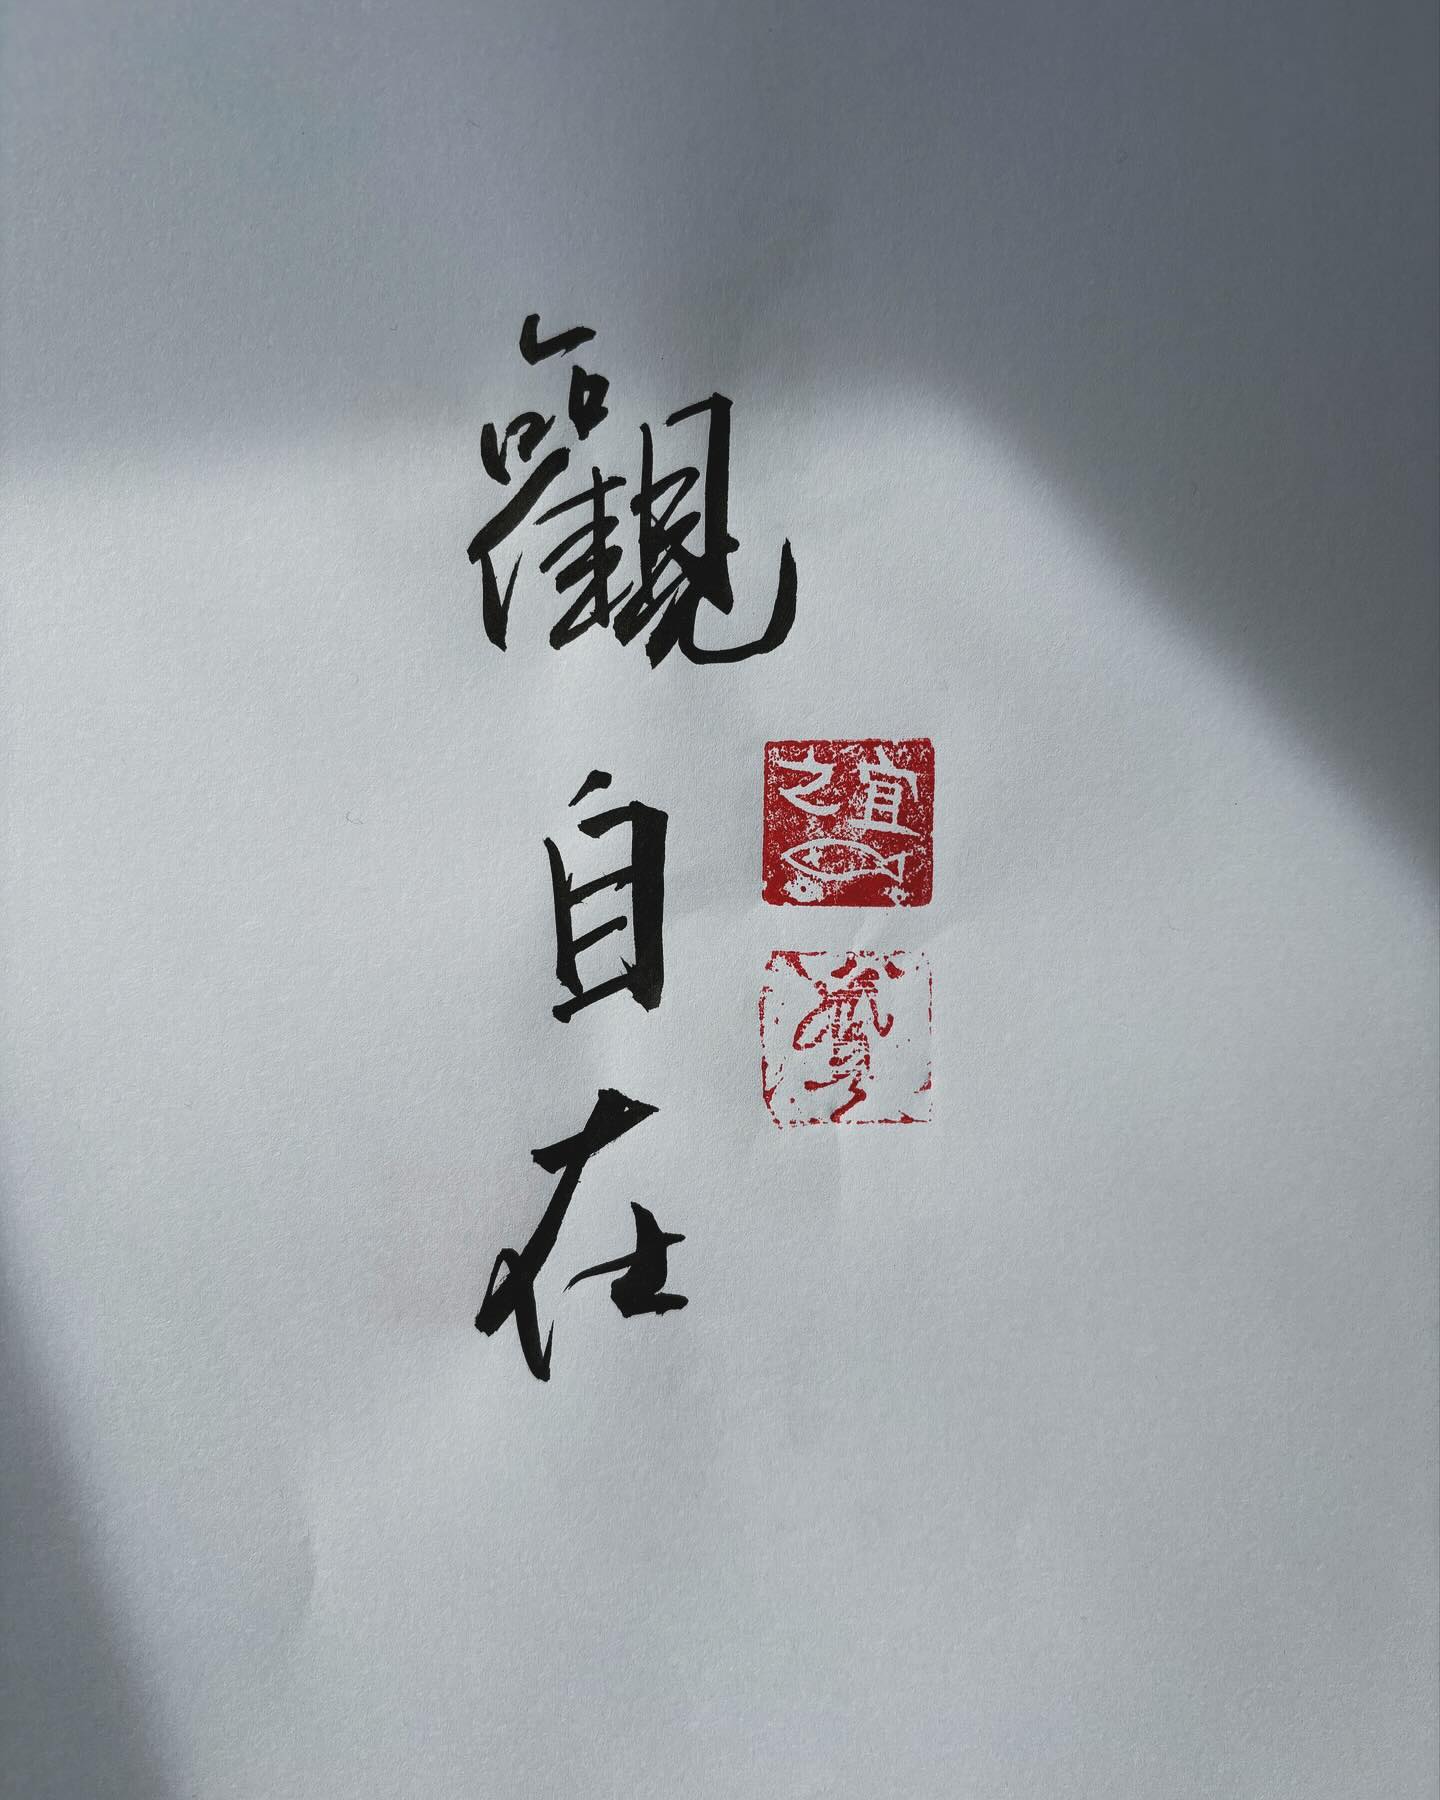 觀自在
宜之